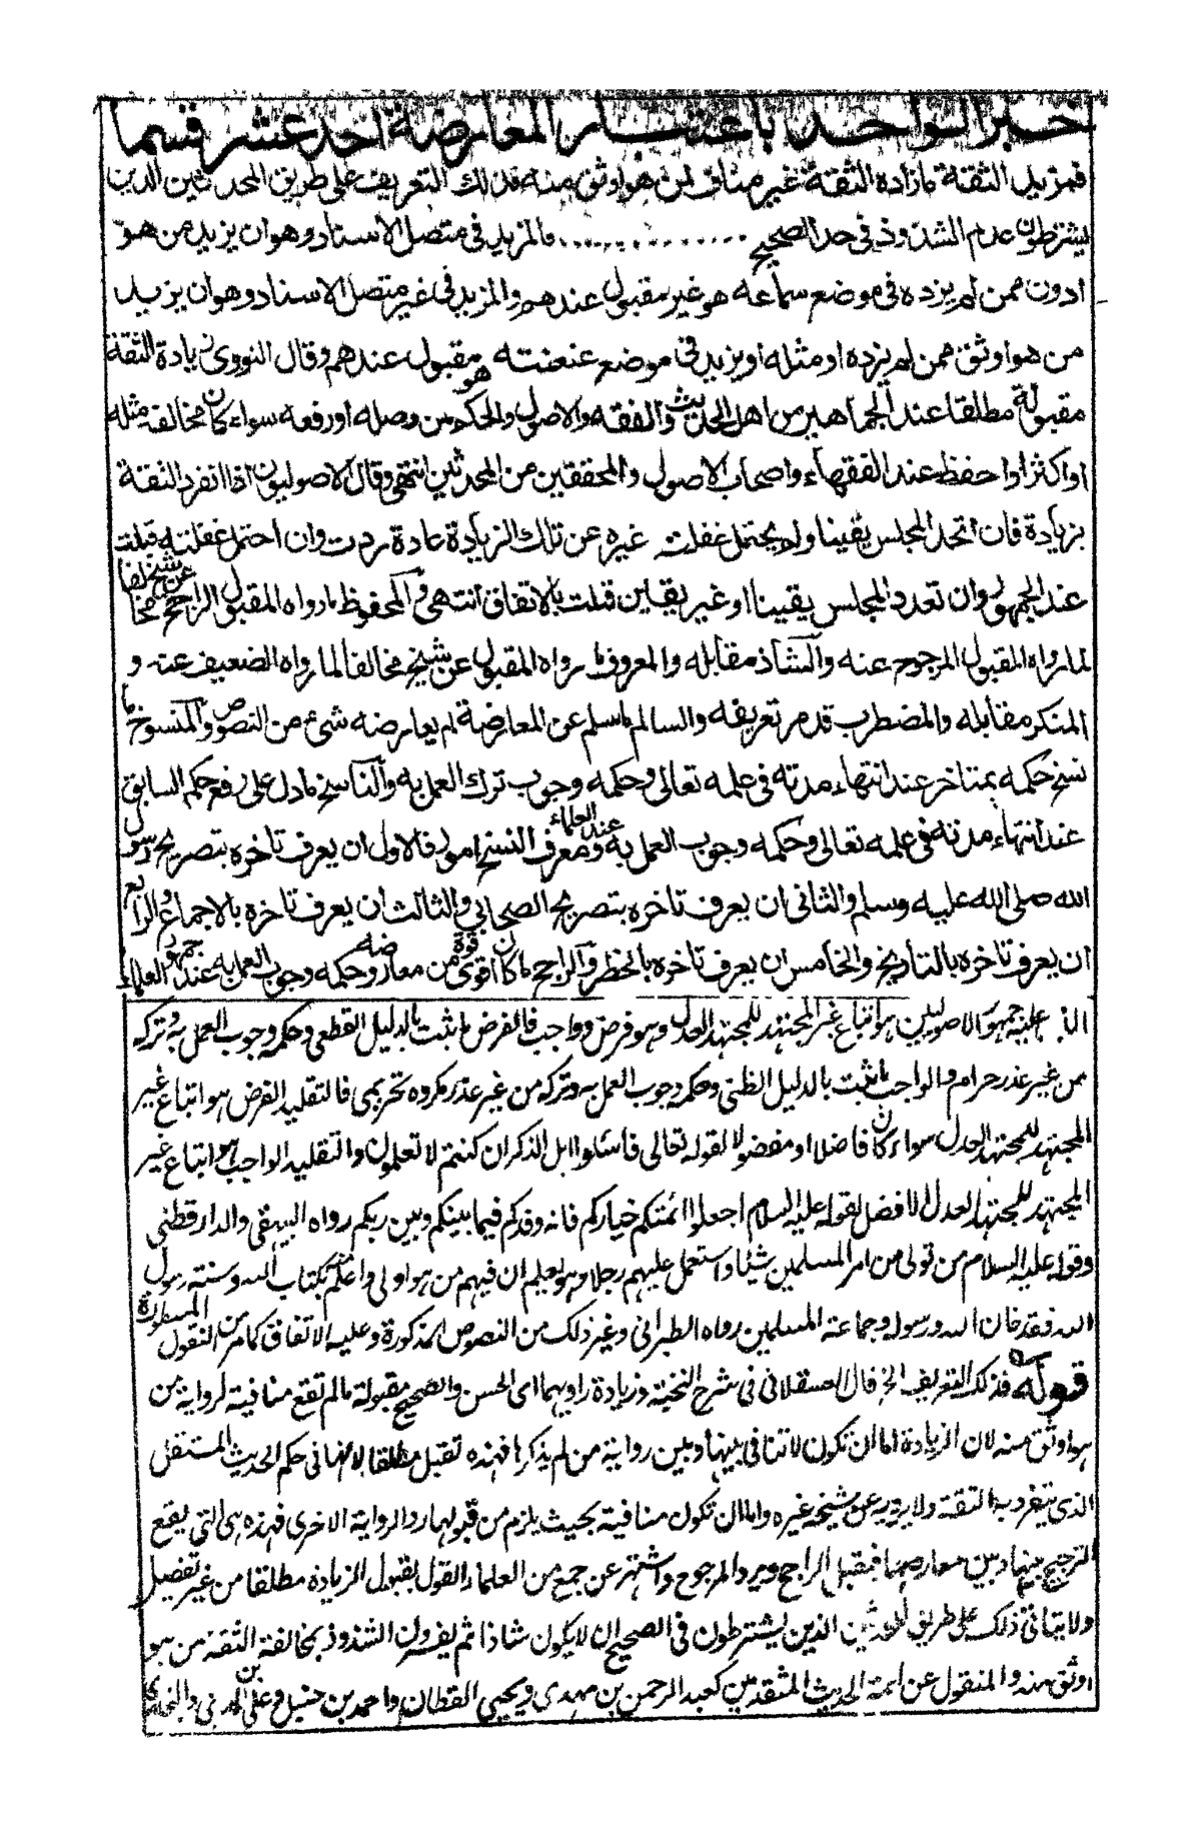 خبر الواحد باعتبار المعارضة احد عشر قسما
فمزيد الثقة ما زاده الثقة غير مناف لمن هو اوثق منه فذلك التعريف على طريق المحدثين الذين
يشترطون عدم الشذوذ فى حد الصحيح ............... فالمزيد فى متصل الاسناد وهو ان يزيد من هو
ادون ممن لم يزده فى موضع سماعه هو غير مقبول عندهم والمزيد فى غير متصل الاسناد وهو ان يزيد
من هو اوثق ممن لم يزده او مثله او يزيد فى موضع عنعنته هو مقبول عندهم وقال النووى زيادة الثقة
مقبولة مطلقا عند الجماهير من اهل الحديث والفقه والاصول والحكم من وصله او رفعه سواء كان مخالفه مثله
او اكثر او احفظ عند الفقهاء واصحاب الاصول والمحققين من المحدثين انتهى وقال الاصوليون اذا انفرد الثقة
بزيادة فان اتحد المجلس يقينا ولم يحتمل غفلته غيره عن تلك الزيادة عادة ردت وان احتمل غفلته قبلت
عند الجمهور وان تعدد المجلس يقينا او غير يقين قبلت بالاتفاق انتهى والمحفوظ ما رواه المقبول الراجح عن شيخ مخالفا
لما رواه المقبول المرجوح عنه والشاذ مقابله والمعروف ما رواه المقبول عن شيخ مخالفا لما رواه الضعيف عنه و
المنكر مقابله والمضطرب قد مر تعريفه والسالم ما سلم عن المعارضة لم يعارضه شىء من النصوص والمنسوخ ما
نسخ حكمه بمتاخر عند انتهاء مدته فى علمه تعالى وحكمه وجوب ترك العمل به والناسخ ما دل على رفع حكم السابق
عند انتهاء مدته فى علمه تعالى وحكمه وجوب العمل به عند العلماء ومعرف النسخ امور فالاول ان يعرف تاخره بتصريح رسول
الله صلى الله عليه وسلم والثانى ان يعرف تاخره بتصريح الصحابى والثالث ان يعرف تاخره بالاجماع والرابع
ان يعرف تاخره بالتاريخ والخامس ان يعرف تاخره بالحظر والراجح ما كان اقوى قوة من معارضه وحكمه وجوب العمل به عند جمهور العلماء
عليه جمهور الاصوليين هو اتباع غير المجتهد للمجتهد العدل وهو فرض وواجب فالفرض ما ثبت بالدليل القطعى وحكمه وجوب العمل به وتركه
من غير عذر حرام والواجب ما ثبت بالدليل الظنى وحكمه وجوب العمل به وتركه من غير عذر مكروه تحريمى فالتقليد الفرض هو اتباع غير
المجتهد للمجتهد العدل سواء كان فاضلا او مفضولا لقوله تعالى فاسئلوا اهل الذكر ان كنتم لا تعلمون والتقليد الواجب هو اتباع غير
المجتهد للمجتهد العدل الافضل لقوله عليه السلام اجعلوا ائمتكم خياركم فانه وفدكم فيما بينكم وبين ربكم رواه البيهقى والدارقطنى
وقوله عليه السلام من تولى من امر المسلمين شيئا واستعمل عليهم رجلا وهو يعلم ان فيهم من هو اولى واعلم منه بكتاب الله وسنة رسول
الله فقد خان الله ورسوله وجماعة المسلمين رواه الطبرانى وغير ذلك من النصوص المذكورة وعليه الاتفاق كما مر من النقول المسطورة
قوله فذلك التعريف الخ قال العسقلانى فى شرح النخبة وزيادة راويهما اى الحسن والصحيح مقبولة ما لم تقع منافية لرواية من
هو اوثق منه لان الزيادة اما ان تكون لا تنافى بينها وبين رواية من لم يذكرها فهذه تقبل مطلقا لانها فى حكم الحديث المستقل
الذى يتفرد به الثقة ولا يرويه عن شيخه غيره واما ان تكون منافية بحيث يلزم من قبولها رد الرواية الاخرى فهذه هى التى يقع
الترجيح بينها وبين معارضها فيقبل الراجح ويرد المرجوح واشتهر عن جمع من العلماء القول بقبول الزيادة مطلقا من غير تفصيل
ولا يتاتى ذلك على طريق المحدثين الذين يشترطون فى الصحيح ان لا يكون شاذا ثم يفسرون الشذوذ بمخالفة الثقة من هو
اوثق منه والمنقول عن ائمة الحديث المتقدمين كعبد الرحمن بن مهدى ويحيى القطان واحمد بن حنبل وعلى بن المدينى والبخارى